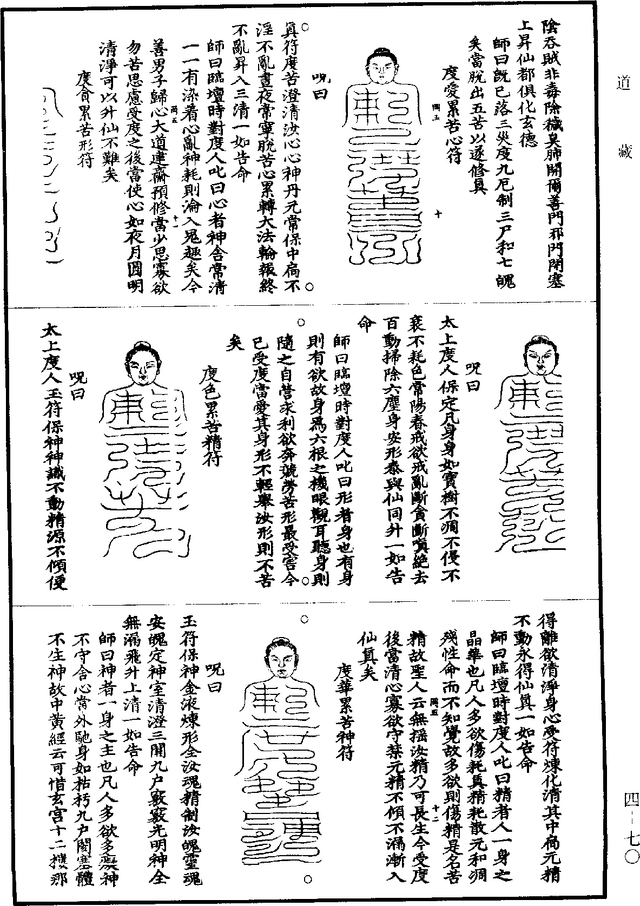 道藏
陰吞賊非毒除穢臭肺開爾善門邪門閉塞
上昇仙都俱化玄德
師曰既已落三災度九厄制三尸和七魄
矣當脫出五苦以遂修真
度愛累苦心符
呪曰
真符度苦澄清汝心心神丹元常保中扃不
淫不亂晝夜常寧脫苦心累轉大法輪報終
不亂昇入三清一如告命
師曰臨壇時對度人叱曰心者神舍常清
一一有染著心亂神耗則淪入鬼趣矣今
善男子歸心大道建齋預修當少思寡欲
勿苦思慮受度之後當使心如夜月圓明
清淨可以升仙不難矣
度貪累苦形符
呪曰
太上度人保定凡身身如寶樹不凋不侵不
衰不耗色常陽春戒欲戒亂斷貪斷嗔絕去
百動掃除六塵身安形泰與仙同升一如告
命
師曰臨壇時對度人叱曰形者身也有身
則有欲故身為六根之機眼觀耳聽身則
隨之自營求利欲奔競勞苦形最受害今
已受度當愛其身形不輕舉汝形則不苦
矣
度色累苦精符
呪曰
太上度人玉符保神神識不動精源不傾便
得離欲清淨身心受符煉化清其中扃元精
不動永得仙真一如告命
師曰臨壇時對度人叱曰精者人一身之
晶華也凡人多欲傷耗真精耗散元和凋
殘性命而不知覺故多欲則傷精是名苦
精故聖人云無搖汝精乃可長生今受度
後當清心寡欲守禁元精不傾不漏漸入
仙真矣
度華累苦神符
呪曰
玉符保神金液煉形全汝魂精制汝魄靈魂
安魄定神室清澄三關九戶竅竅光明神全
無溺飛升上清一如告命
師曰神者一身之主也凡人多欲多癡神
不守舍心常外馳身如枯朽九戶閉塞體
不生神故中黃經云可惜玄宮十二樓那
四-七〇